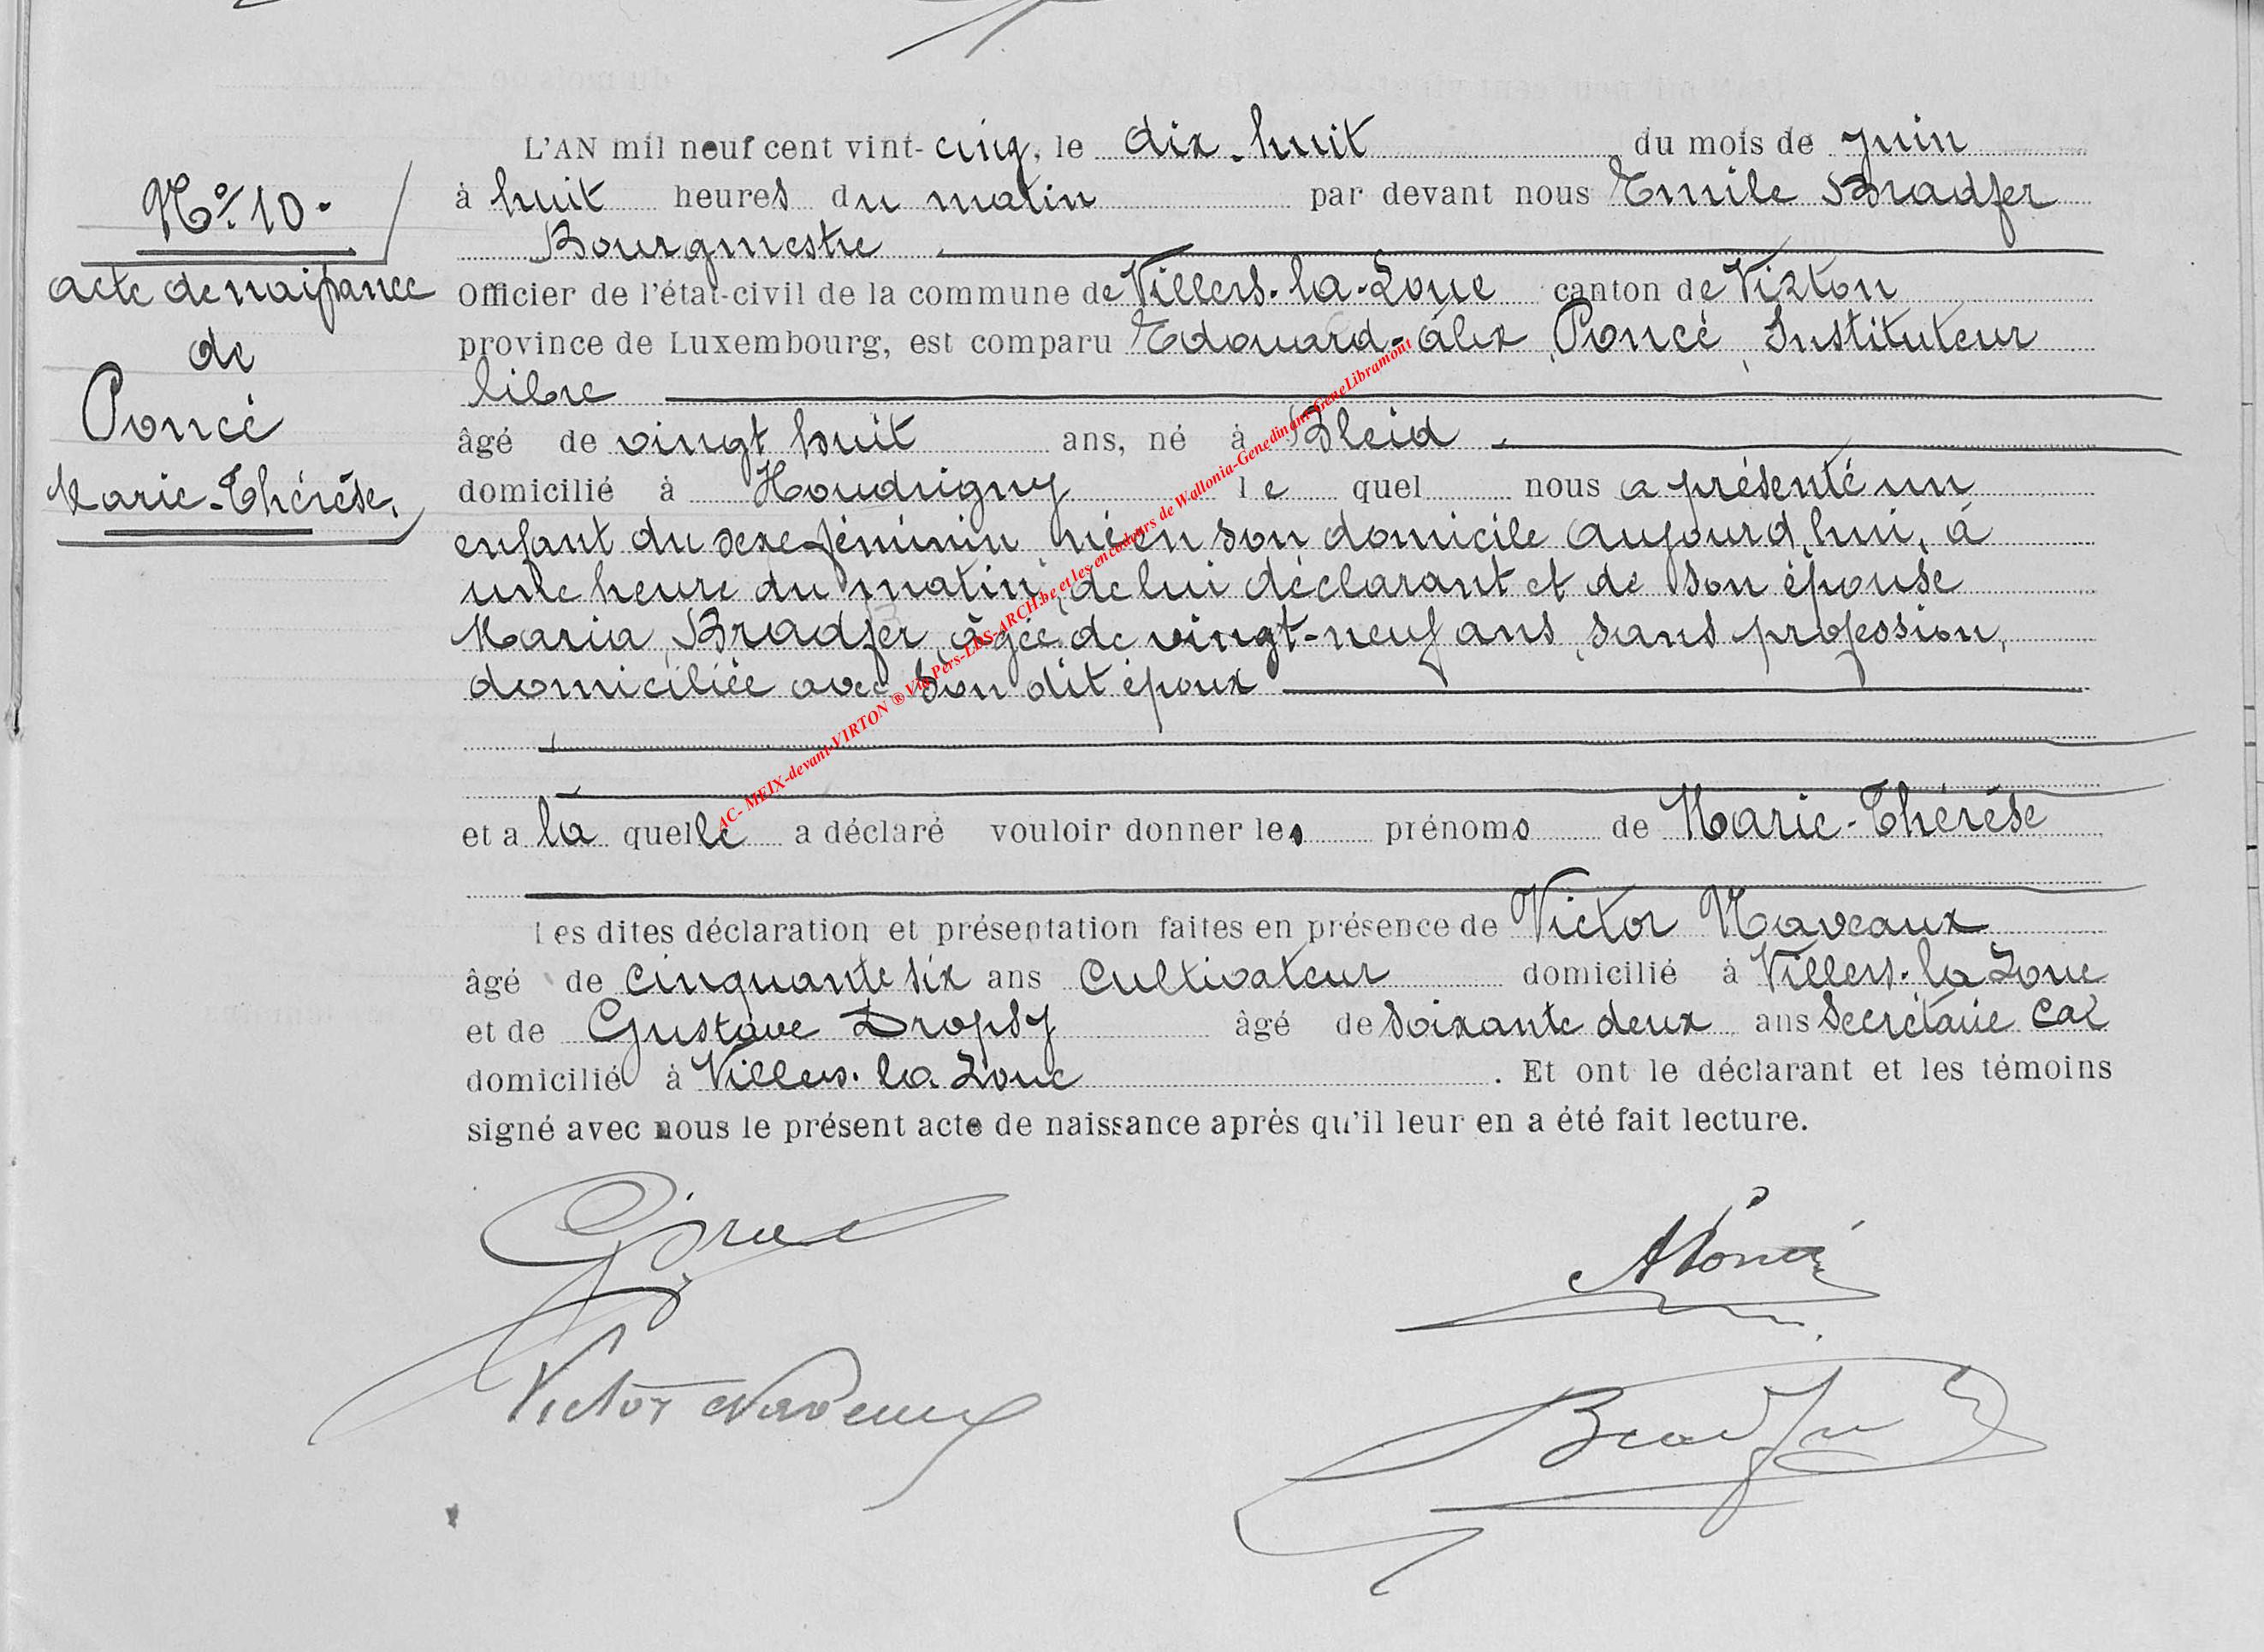 N° 10.
acte de naissance
de
Poncé
Marie-Thérèse.
L'AN mil neuf cent vint-cinq, le dix-huit du mois de juin
à huit heures du matin par devant nous Emile Bradfer
Bourgmestre
Officier de l'état-civil de la commune de Villers-la-Loue canton de Virton
province de Luxembourg, est comparu Edouard-Alix Poncé, Instituteur
libre
âgé de vingt huit ans, né à Bleid
domicilié à Houdrigny lequel nous a présenté un
enfant du sexe féminin, né en son domicile aujourd'hui, à
une heure du matin, de lui déclarant et de son épouse
Maria Bradfer, âgée de vingt-neuf ans, sans profession,
domiciliée avec son dit époux
et a la quelle a déclaré vouloir donner les prénoms de Marie-Thérèse
Les dites déclaration et présentation faites en présence de Victor Naveaux
âgé de cinquante six ans cultivateur domicilié à Villers-la-Loue
et de Gustave Dropsy âgé de soixante deux ans Secrétaire cal
domicilié à Villers-la-Loue. Et ont le déclarant et les témoins
signé avec nous le présent acte de naissance après qu'il leur en a été fait lecture.
A Poncé
Victor Naveaux
Bradfer
AC- MEIX-devant-VIRTON ® Via Pers-LDS-ARCH.be et les encodeurs de Wallonia-Genedinant-GeneLibramont